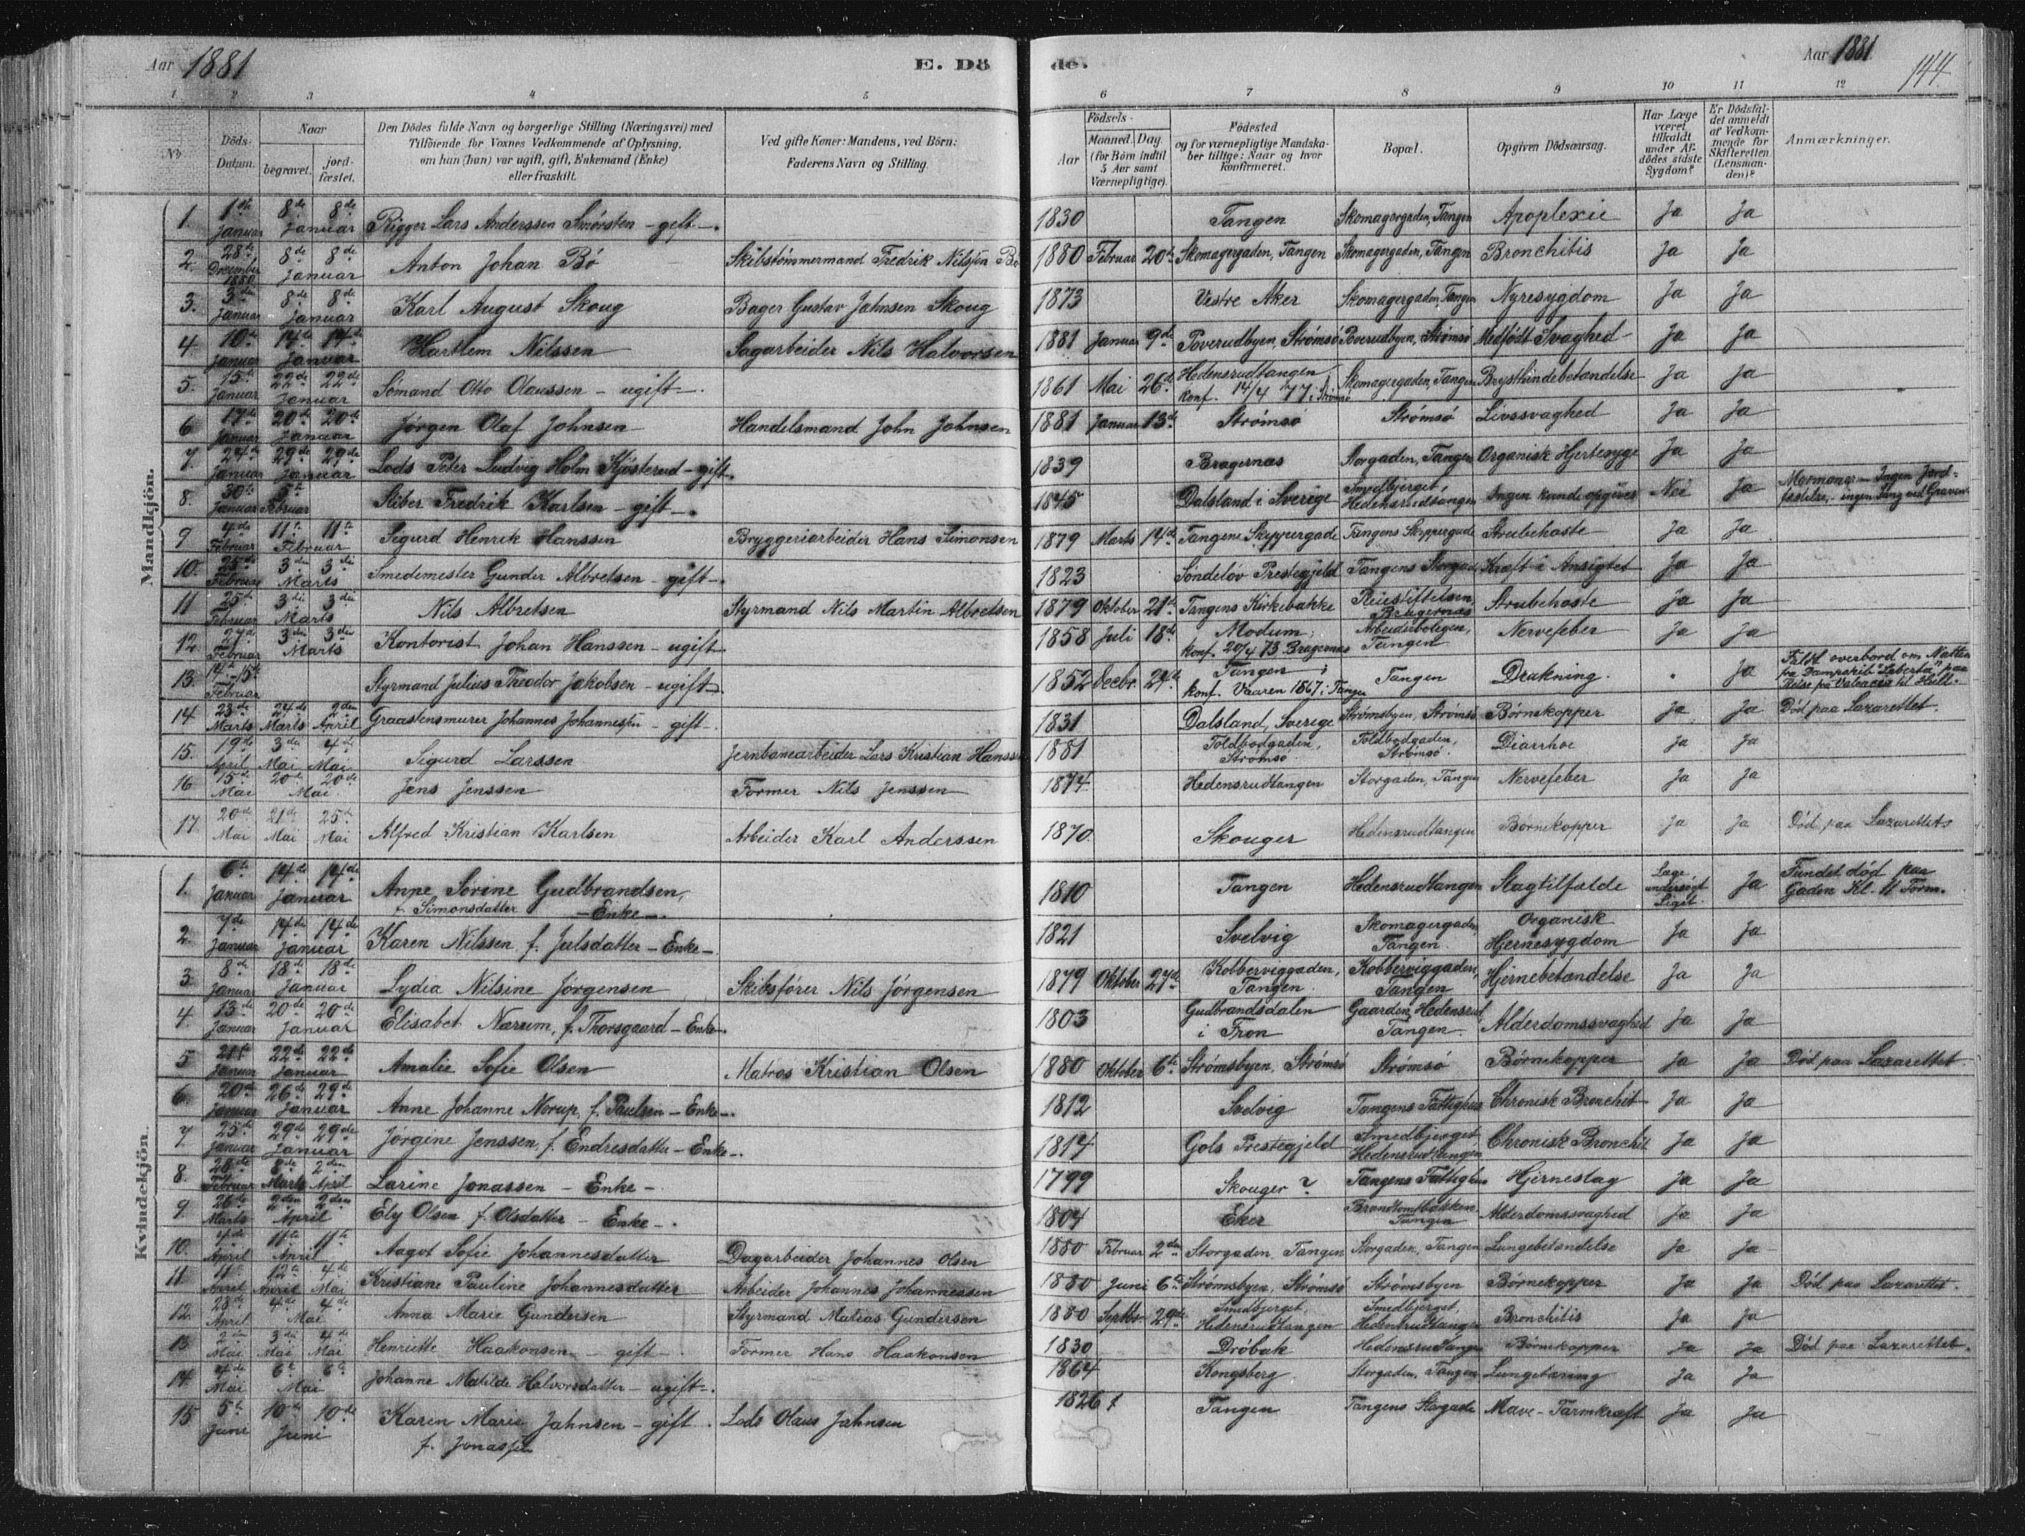 Aar 1881
E. Dö
de.
Aar 1881
144.
1 2 3 4 5 6 7 8 9 10 11 12
No
Döds-Datum.
Naar
begravet.
jord-fæstet.
Den Dödes fulde Navn og borgerlige Stilling (Næringsvei) med
Tilföiende for Voxnes Vedkommende af Oplysning,
om han (hun) var ugift, gift, Enkemand (Enke)
eller fraskilt.
Ved gifte Koner: Mandens, ved Börn:
Faderens Navn og Stilling.
Födsels-
Aar
Maaned. Dag.
(for Börn indtil
5 Aar samt
Værnepligtige).
Födested
og for værnepligtige Mandska-
ber tillige: Naar og hvor
konfirmeret.
Bopæl.
Opgiven Dödsaarsag.
Har Læge
været
tilkaldt
under Af-
dödes sidste
Sygdom?
Er Dödsfal-
det anmeldt
af Vedkom-
mende for
Skifteretten
(Lensman-
den)?
Anmærkninger.
Mandkjön.
1. 1ste Januar 8de Januar 8de Rigger Lars Anderssen Smörsten - gift -. 1830 Tangen Skomagergaden, Tangen Apoplexie Ja Ja
2. 28de December 1880 8de Januar 8de Anton Johan Bö Skibstömmermand Fredrik Nilssen Bö 1880 Februar 20de Skomagergaden, Tangen Skomagergaden, Tangen Bronchitis Ja Ja
3. 3die Januar 8de Januar 8de Karl August Skoug Bager Gustav Jahnsen Skoug 1873 Vestre Aker Skomagergaden, Tangen Nyresygdom Ja Ja
4. 10de Januar 14de Januar 14de Hartlem Nilssen Sagarbeider Nils Halvorsen 1881 Januar 9de Poverudbyen, Strømsø Poverudbyen, Strømsø Medfödt Svaghed Ja Ja
5. 15de Januar 22de Januar 22de Sömand Otto Olaussen - ugift -. 1861 Mai 26de Hedensrudtangen konf. 14/4 77 i Strømsø Skomagergaden, Tangen Brysthindebetændelse Ja Ja
6. 17de Januar 20de Januar 20de Jörgen Olaf Johnsen Handelsmand John Johnsen 1881 Januar 13de Strømsø Strømsø Livssvaghed Ja Ja
7. 24de Januar 29de Januar 29de Lods Peter Ludvig Holm Kjösterud - gift. 1839 Bragernæs Storgaden, Tangen Organisk Hjertesyge Ja Ja
8. 30te Januar 5te Februar Sliber Fredrik Karlsen - gift -. 1845 Dalsland i Sverige Smedbjerget, Hedensrudtangen Ingen kunde opgives Nei Ja Mormoner - Ingen Jordfæstelse, - ingen Sang ved Graven
9. 4de Februar 11te Februar 11te Sigurd Henrik Hanssen Bryggeriarbeider Hans Simonsen 1879 Marts 14de Tangens Skippergade Tangens Skippergade Strubehoste Ja Ja
10. 25de Februar 3die Marts 3die Smedemester Gunder Albretsen - gift -. 1823 Söndelöv Prestegjeld Tangens Storgade Kræft i Ansigtet Ja Ja
11 25de Februar 3die Marts 3die Nils Albretsen Styrmand Nils Martin Albretsen 1879 Oktober 21de Tangens Kirkebakke Bragernæs Strubehoste Ja Ja
12. 27de Februar 3die Marts 3die Kontorist Johan Hanssen - ugift. 1858 Juli 18de Modum, konf. 20/4 73 Bragernæs Arbeiderboligen, Tangen Nervefeber Ja Ja
13. 14de-15de Februar Styrmand Julius Theodor Jakobsen - ugift -. 1852 Decbr. 29de Tangen; konf. Vaaren 1867 i Tangen Tangen Drukning. Ja Faldt overbord om Natten fra Dampskib "Liberta" paa Reise fra Valencia til Hull.
14. 23de Marts 24de Marts 2den April Graastensmurer Johannes Johannessen - gift -. 1831 Dalsland, Sverige Strømsbyen, Strømsø Børnekopper Ja Ja Död paa Lazarettet.
15. 19de April 3die Mai 4de Mai Sigurd Larssen Jernbanearbeider Lars Kristian Hanssen 1881 Toldbodgaden, Strømsø Toldbodgaden, Strømsø. Diarrhoe Ja Ja
16. 15de Mai 20de Mai 20de Jens Jenssen Former Nils Jenssen 1874. Hedensrudtangen Storgaden, Tangen Nervefeber Ja Ja
17. 20de Mai 21de Mai 25de Mai Alfred Kristian Karlsen Arbeider Karl Anderssen 1870. Skouger Hedensrudtangen Børnekopper Ja Ja Död paa Lazarettet
Kvindekjön.
1. 6te Januar 14de Januar 14de Anne Sörine Gudbrandsen, f. Simonsdatter - Enke -. 1810 Tangen Hedensrudtangen Slagtilfælde Læge undersögt Liget Ja Fundet död paa Gaden Kl. 11 Form.
2. 7de Januar 14de Januar 14de Karen Nilssen, f. Julsdatter - Enke - 1821 Svelvig Skomagergaden, Tangen. Organisk Hjernesygdom Ja Ja
3. 8de Januar 18de Januar 18de Lydia Nilsine Jörgensen Skibsförer Nils Jörgensen 1879 Oktober 27de Kobberviggaden, Tangen. Kobberviggaden, Tangen Hjernebetændelse Ja Ja
4. 13de Januar 20de Januar 20de Elisabet Nærum, f. Thorsgaard - Enke 1803 Gudbrandsdalen i Fron Gaarden Hedensrud Tangen. Alderdomssvaghed Ja Ja
5 21de Januar 22de Januar 22de Amalie Sofie Olsen Matros Kristian Olsen 1880 Oktober 6te Strømsbyen, Strømsø Strømsø Børnekopper Ja Ja Död paa Lazarettet.
6. 20de Januar 26de Januar 29de Anne Johanne Norup, f. Paulsen - Enke -. 1812 Svelvig Tangens Fattighus Chronisk Bronchit Ja Ja
7. 25de Januar 29de Januar 29de Jörgine Jenssen, f. Endresdatter - Enke -. 1814 Gols Prestegjeld Smedbjerget Hedensrudtangen Chronisk Bronchit Ja Ja
8. 28de Februar 8de Marts 2den April Larine Jonassen - Enke - 1799 Skouger? Tangens Fattighus Hjerneslag Ja Ja
9. 26de Marts 2den April 2den Ely Olsen f. Olsdatter - Enke -. 1804 Eker Tangen Alderdomssvaghed Ja Ja
10. 4de April 11te April 11te Aagot Sofie Johannesdatter Dagarbeider Johannes Olsen 1880 Februar 2den Storgaden, Tangen Storgaden, Tangen Lungebetændelse Ja Ja
11. 11te April 12te April 4de Mai Kristiane Pauline Johannesdatter Arbeider Johannes Johannessen 1880 Juni 6te Strømsbyen, Strømsø Strømsbyen Børnekopper Ja Ja Död paa Lazarettet.
12. 28de April 4de Mai 4de Anna Marie Gundersen Styrmand Matias Gundersen 1880 Septbr. 29de Smedbjerget, Hedensrudtangen Smedbjerget, Hedensrudtangen Bronchitis Ja Ja
13. 2den Mai 3die Mai 4de Mai Henriette Haakonsen - gift - Former Hans Haakonsen 1830 Dröbak Hedensrudtangen Børnekopper Ja Ja Död paa Lazarettet.
14. 4de Mai 6te Mai 6te Johanne Matilde Halvorsdatter - ugift -. 1864 Kongsberg Storgaden, Tangen Lungetæring Ja Ja
15 5te Juni 10de Juni 10de Karen Marie Jahnsen - gift. f. Jonassen Lods Olaus Jahnsen 1826 Tangen Tangens Storgade Mave-Tarmkræft Ja Ja